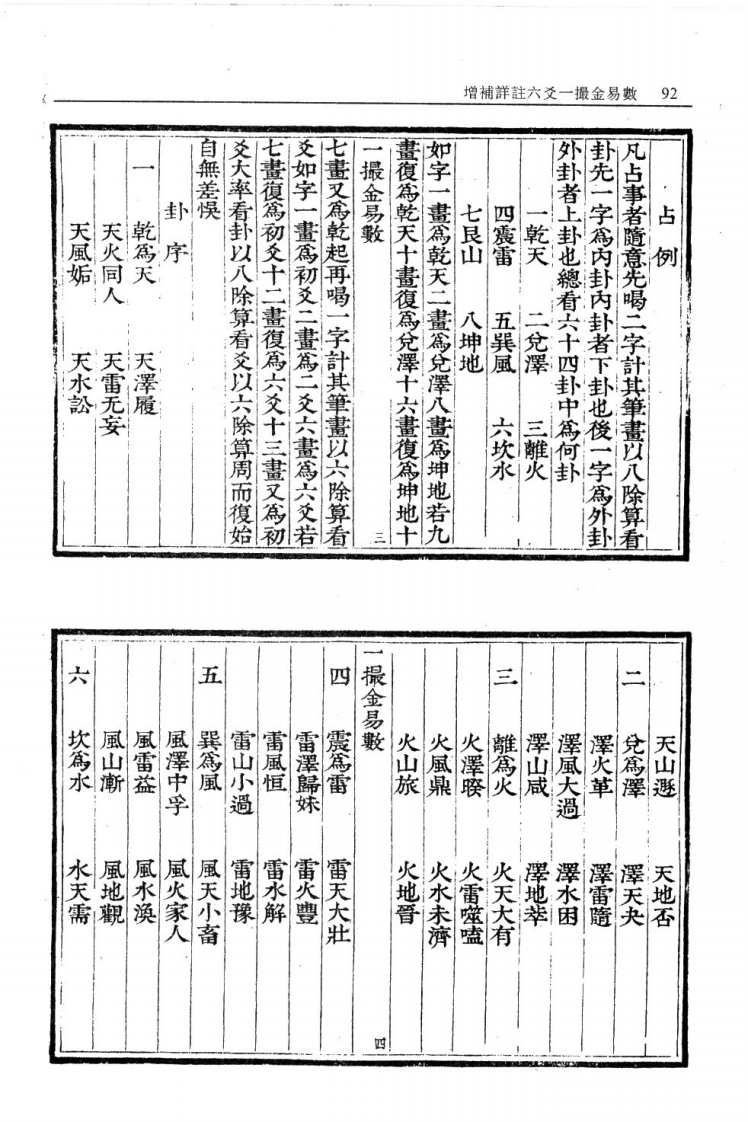 增補詳註六爻一撮金易數　92
占例
凡占事者隨意先喝二字計其筆畫以八除算看
卦先一字爲內卦內卦者下卦也後一字爲外卦
外卦者上卦也總看六十四卦中爲何卦
一乾天　二兌澤　三離火
四震雷　五巽風　六坎水
七艮山　八坤地
如字一畫爲乾天二畫爲兌澤八畫爲坤地若九
畫復爲乾天十畫復爲兌澤十六畫復爲坤地十
一撮金易數　三
七畫又爲乾起再喝一字計其筆畫以六除算看
爻如字一畫爲初爻二畫爲二爻六畫爲六爻若
七畫復爲初爻十二畫復爲六爻十三畫又爲初
爻大率看卦以八除算看爻以六除算周而復始
自無差悞
卦序
一　乾爲天　天澤履
天火同人　天雷无妄
天風姤　天水訟
天山遯　天地否
二　兌爲澤　澤天夬
澤火革　澤雷隨
澤風大過　澤水困
澤山咸　澤地萃
三　離爲火　火天大有
火澤睽　火雷噬嗑
火風鼎　火水未濟
火山旅　火地晉
一撮金易數　四
四　震爲雷　雷天大壯
雷澤歸妹　雷火豐
雷風恒　雷水解
雷山小過　雷地豫
五　巽爲風　風天小畜
風澤中孚　風火家人
風雷益　風水渙
風山漸　風地觀
六　坎爲水　水天需